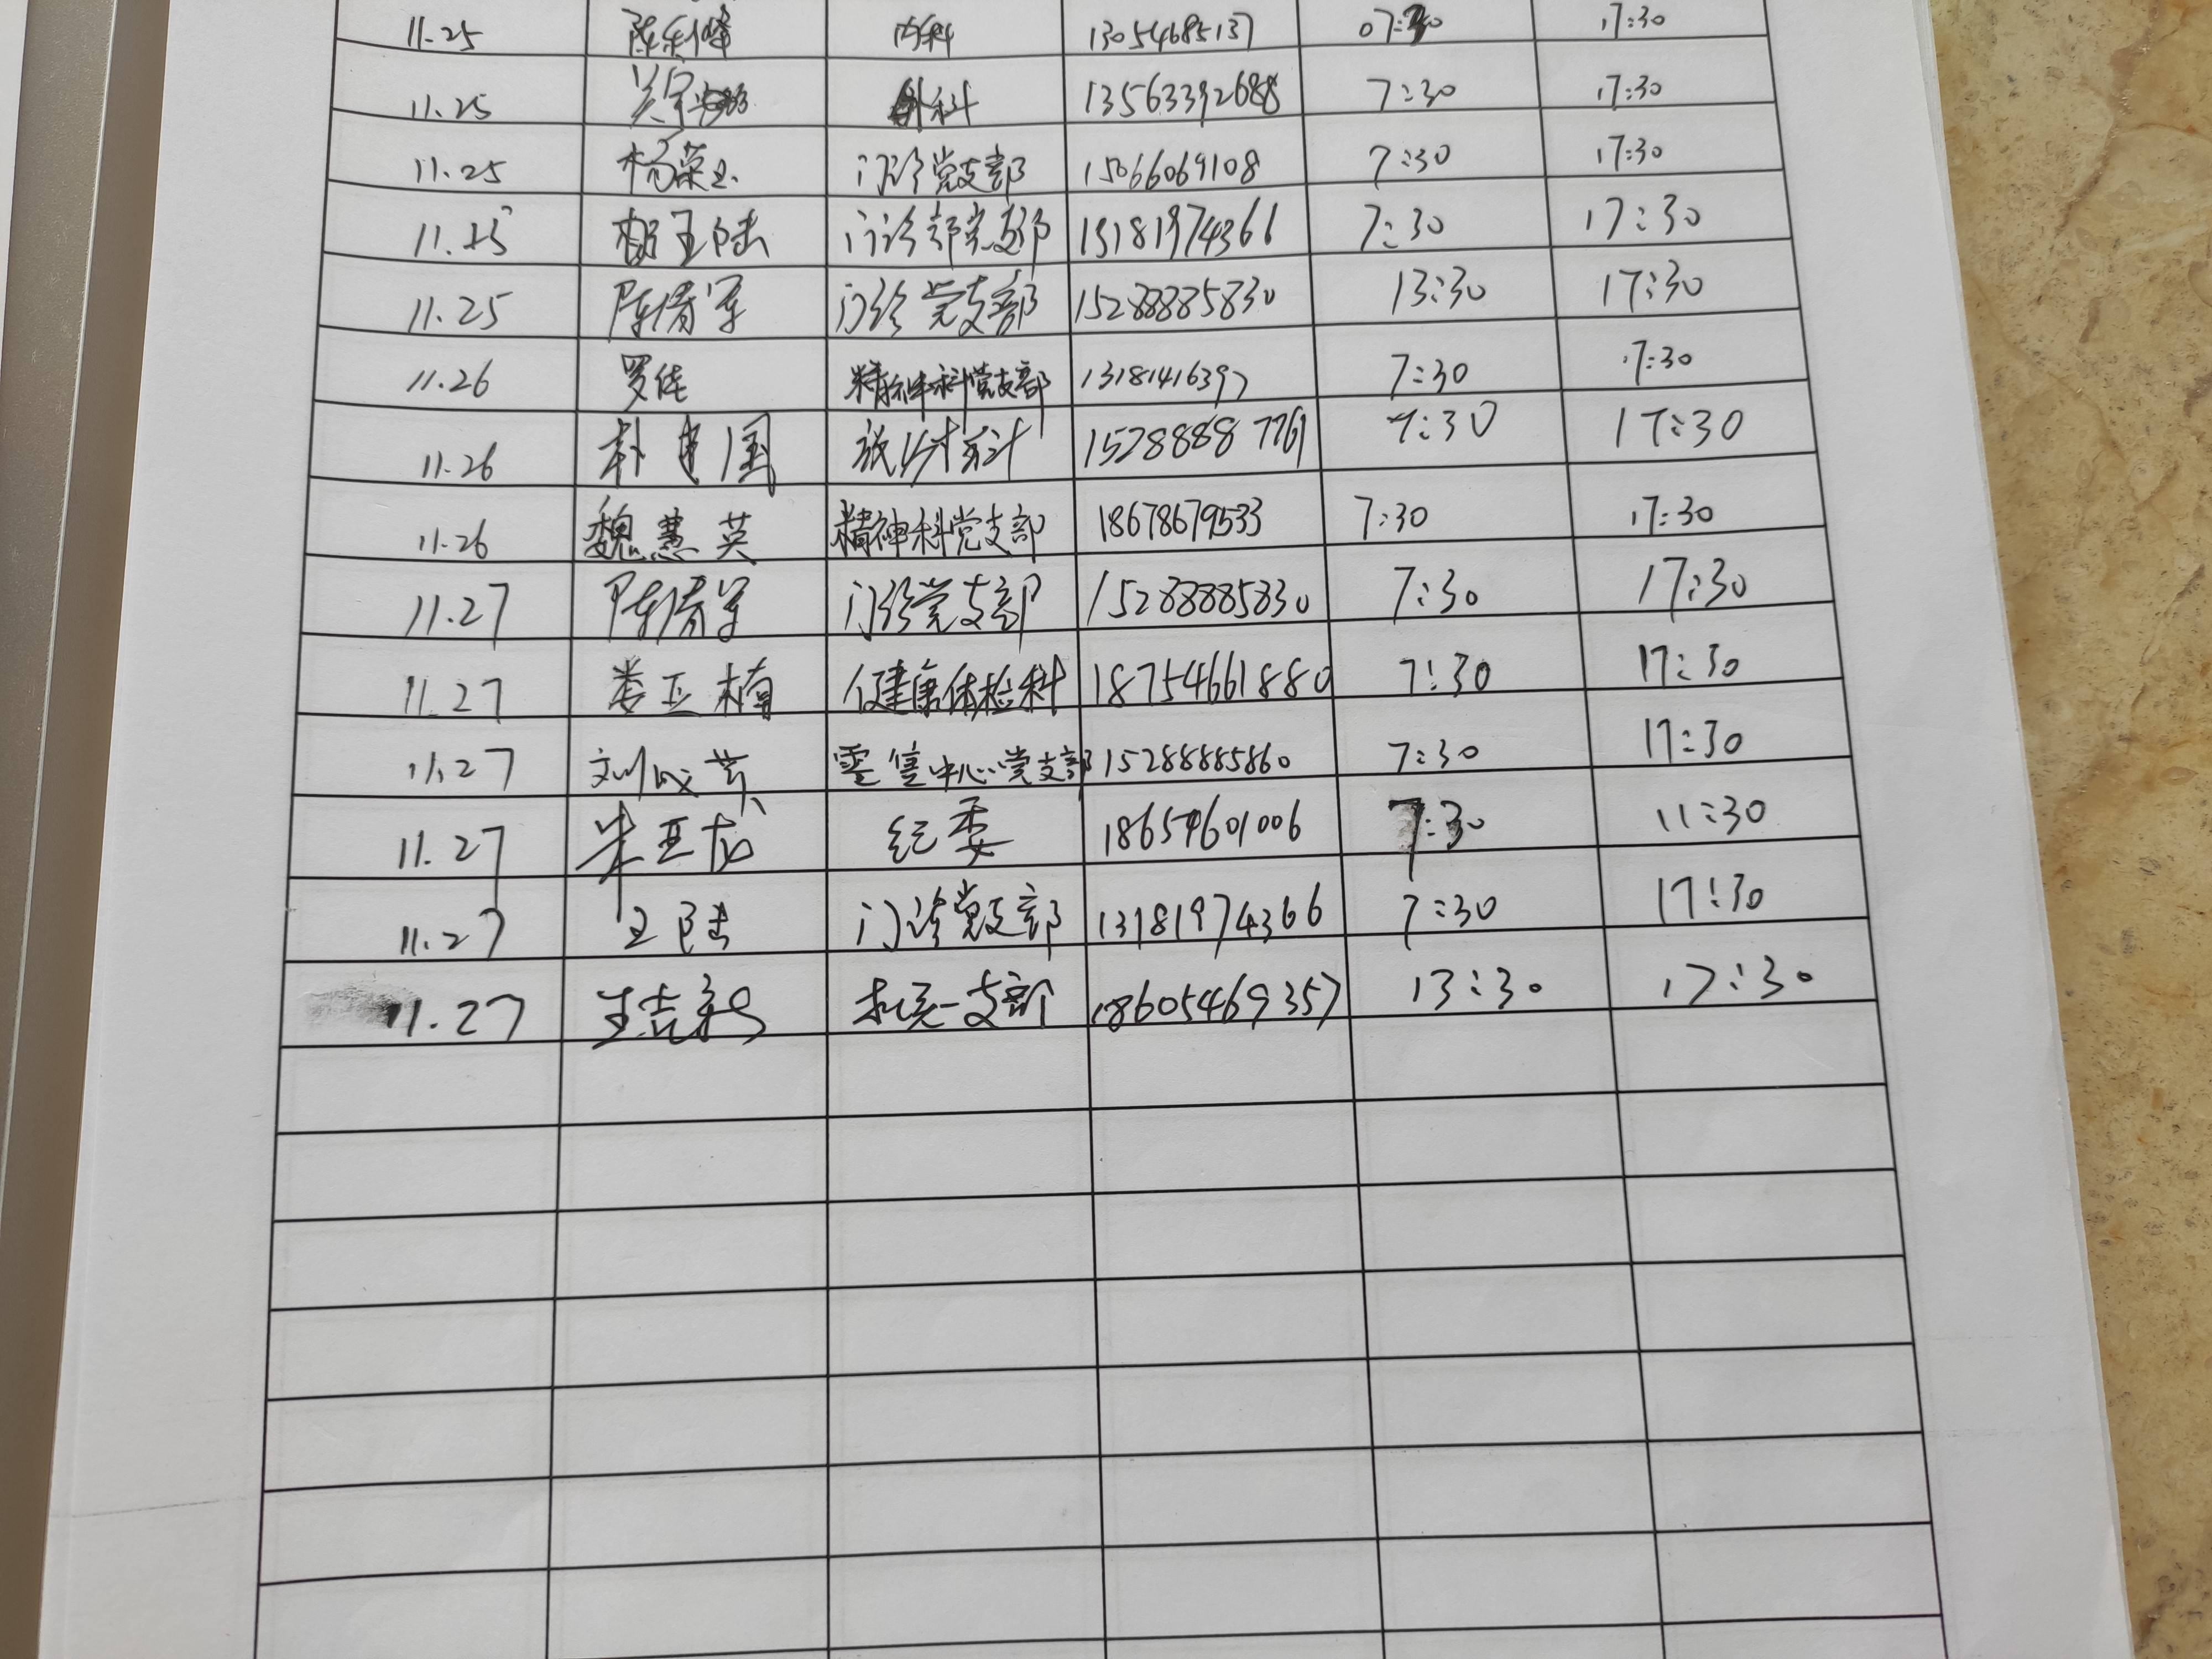 11.25 陈利峰 内科 13054685137 07:30 17:30
11.25 外科 13563392688 7:30 17:30
11.25 杨荣玉 门诊党支部 15066069108 7:30 17:30
11.25 王陆 门诊部党支部 13181974366 7:30 17:30
11.25 陈倩军 门诊党支部 15288885830 13:30 17:30
11.26 罗佳 精神科党支部 13181416397 7:30 17:30
11.26 国 放射科 15288887761 7:30 17:30
11.26 魏慧英 精神科党支部 18678679533 7:30 17:30
11.27 陈倩军 门诊党支部 15288885830 7:30 17:30
11.27 娄亚楠 健康体检科 18754661880 7:30 17:30
11.27 刘成芬 零售中心党支部 15288885860 7:30 17:30
11.27 朱亚龙 纪委 18654601006 7:30 11:30
11.27 王陆 门诊党支部 13181974366 7:30 17:30
11.27 机关一支部 18605469357 13:30 17:30